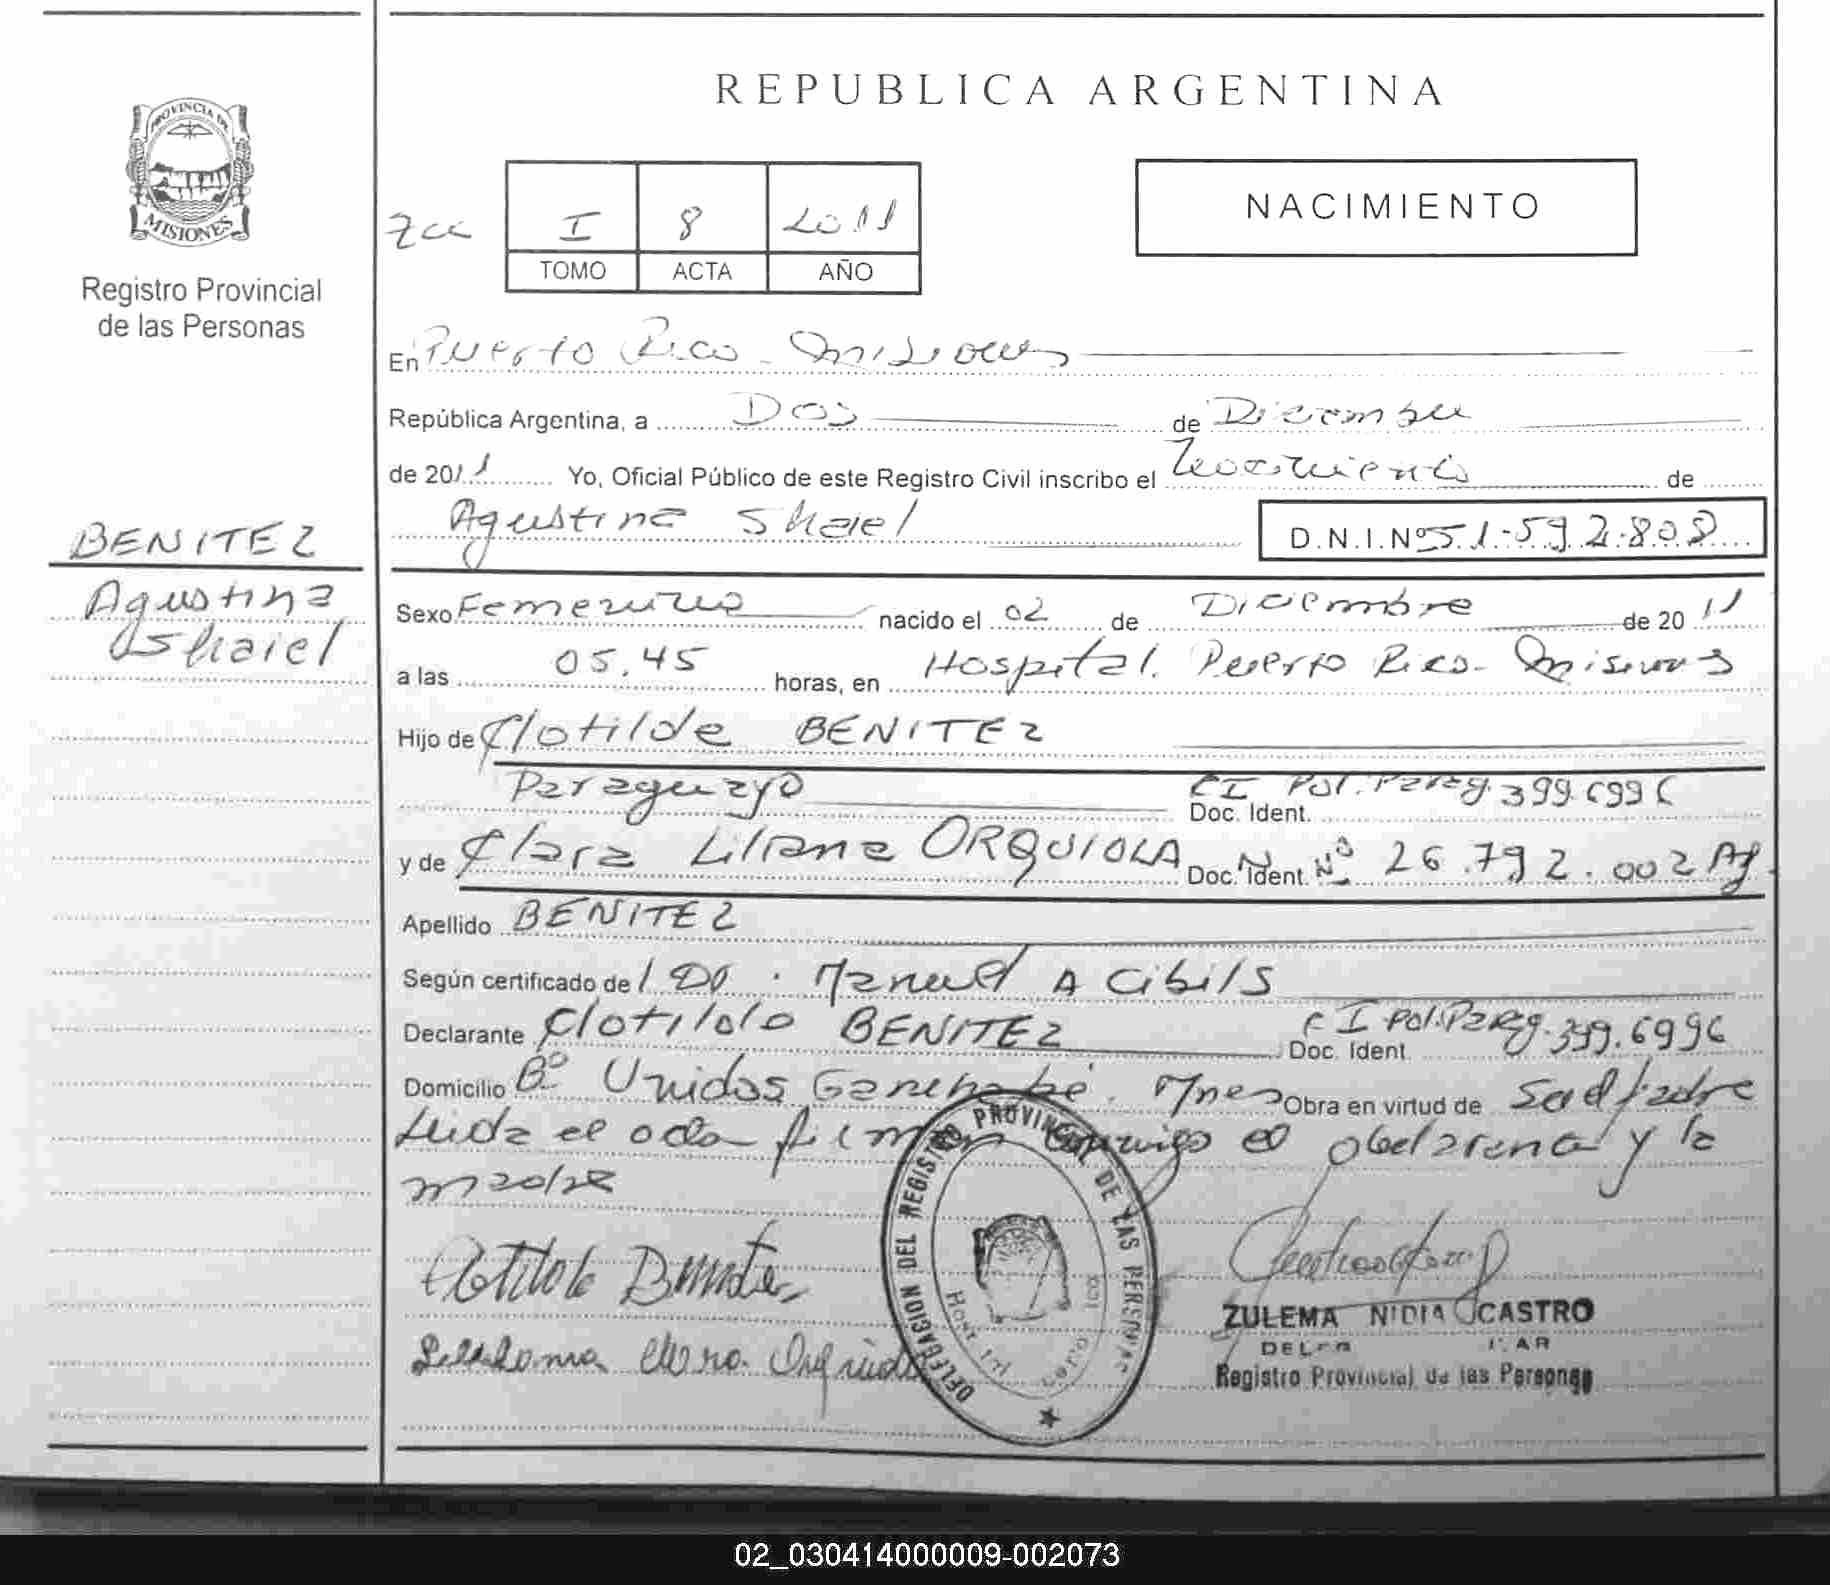 REPUBLICA ARGENTINA
PROVINCIA DE
MISIONES
Registro Provincial
de las Personas
I 8 2011
TOMO ACTA AÑO
NACIMIENTO
En Puerto Rico - Misiones
República Argentina, a Dos de Diciembre
de 2011 Yo, Oficial Público de este Registro Civil inscribo el Nacimiento de
Agustina Shaiel D.N.I.Nº 51-592-808
BENITEZ
Agustina
Shaiel
Sexo Femenino nacido el 02 de Diciembre de 2011
a las 05.45 horas, en Hospital. Puerto Rico - Misiones
Hijo de Clotilde BENITEZ
Paraguayo Doc. Ident. CI Pol. Parag. 399.6996
y de Clara Liliana ORQUIOLA Doc. Ident. Nº 26.792.002 Ag.
Apellido BENITEZ
Según certificado del Dr. Manuel A Cibils
Declarante Clotildo BENITEZ Doc. Ident. CI Pol. Parag. 399.6996
Domicilio Bº Unidos Garuhapé. Mnes Obra en virtud de Ser el padre
Leida el acta firman conmigo el declarante y la
madre
DELEGACION DEL REGISTRO PROVINCIAL DE LAS PERSONAS
ZULEMA NIDIA CASTRO
Registro Provincial de las Personas
02_030414000009-002073